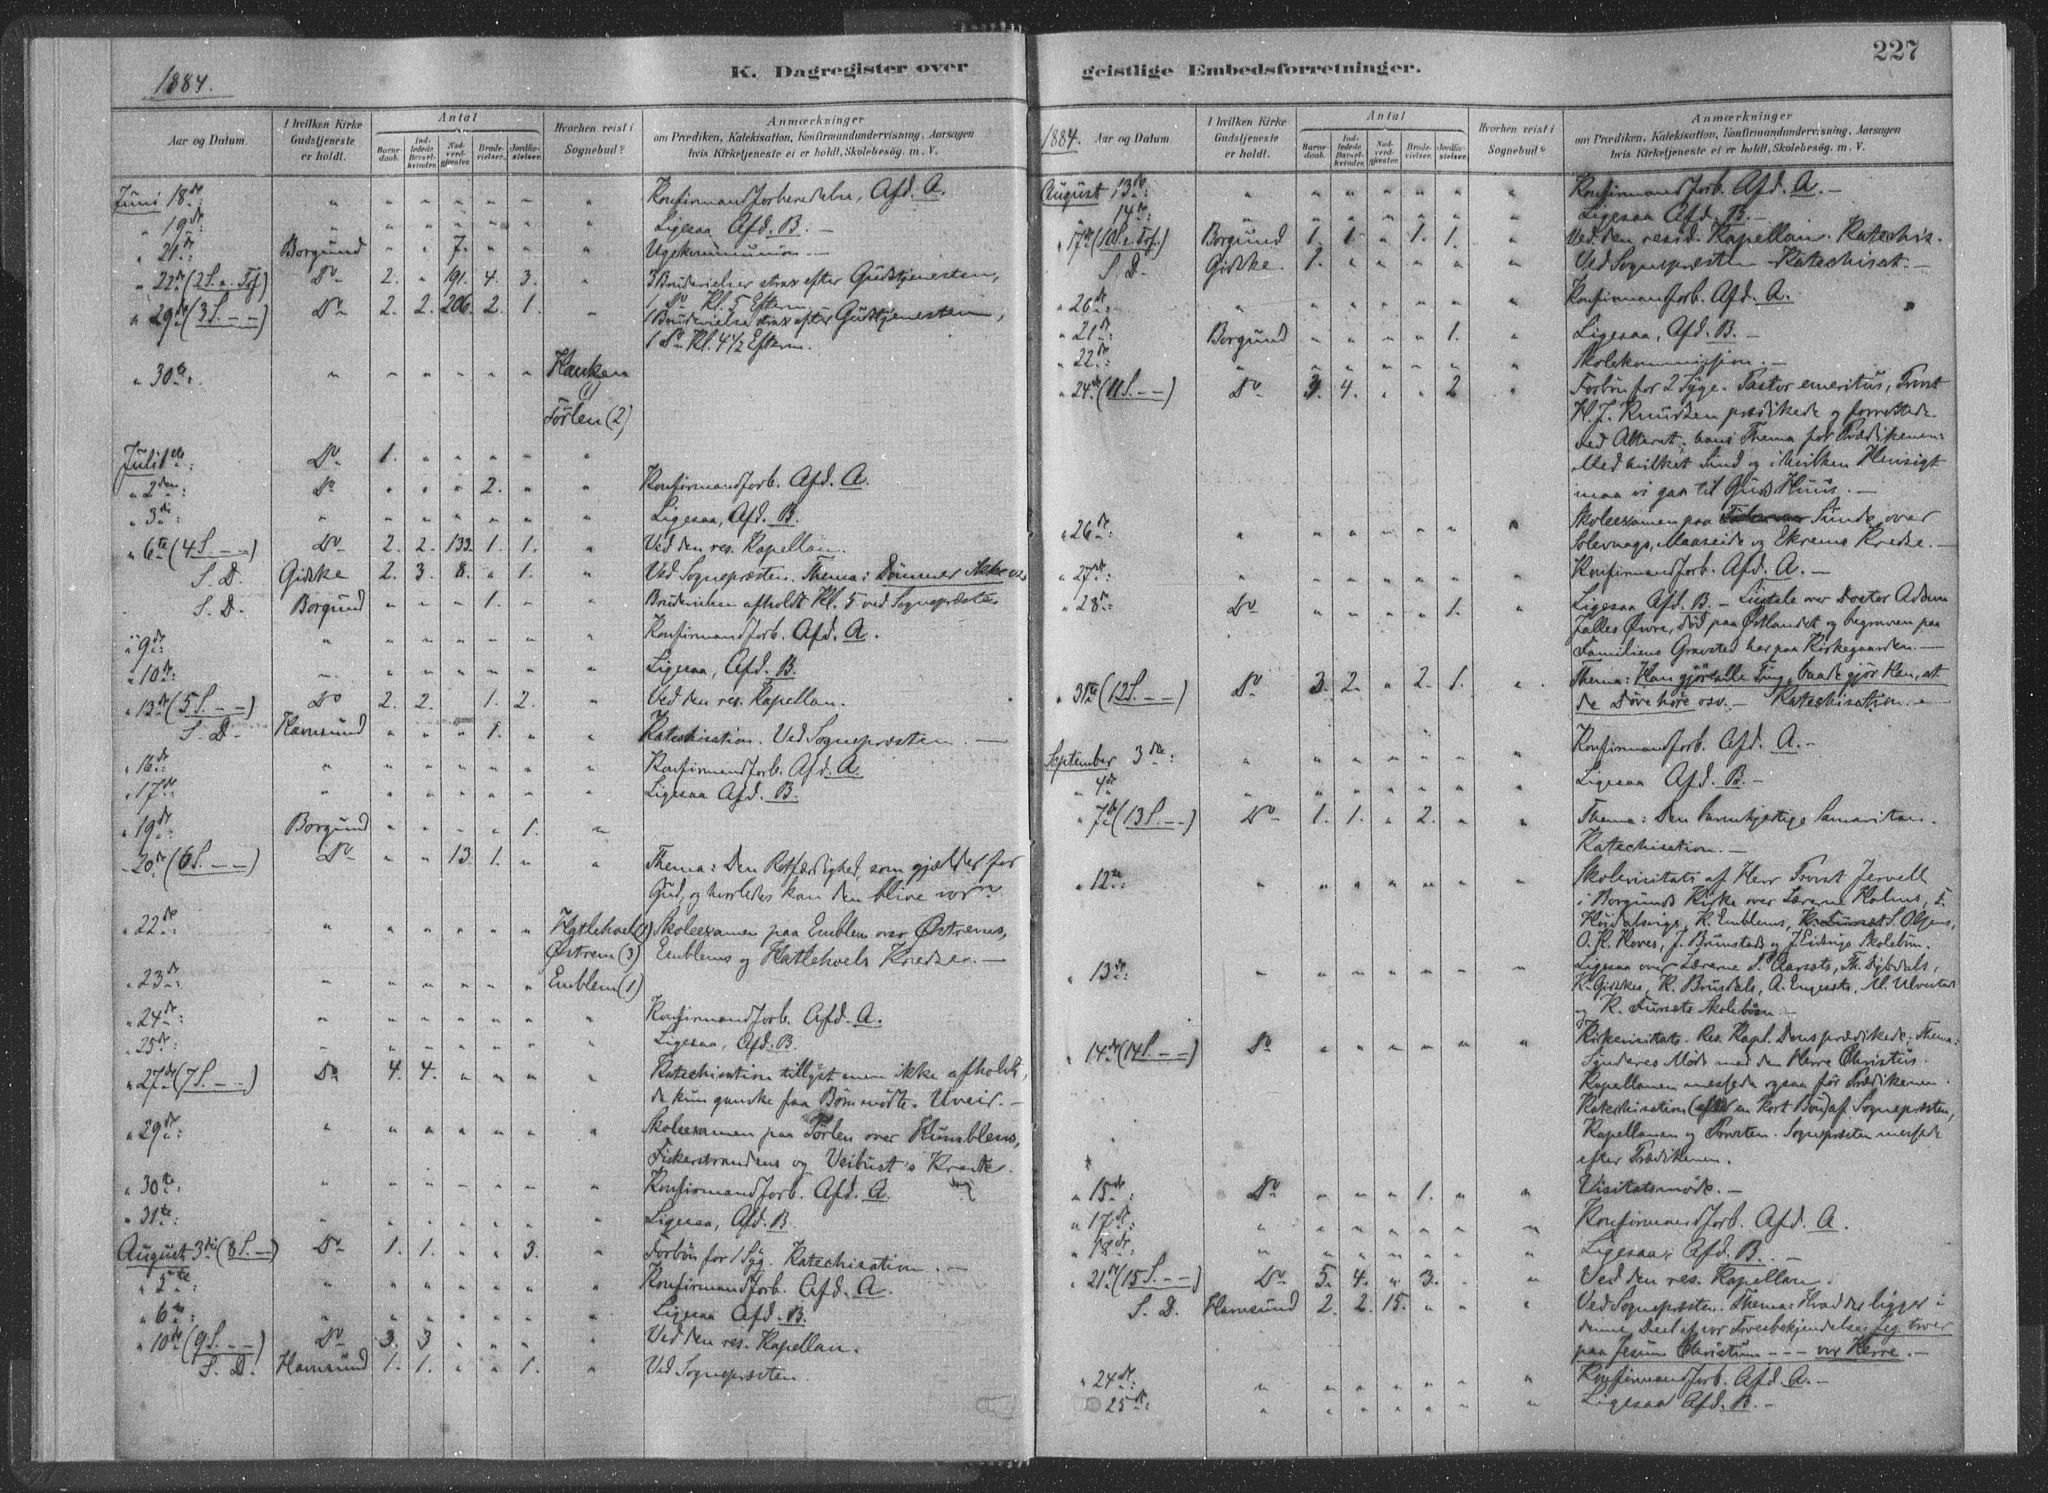 1884.
K. Dagregister over
Aar og Datum.
I hvilken Kirke Gudstjeneste er holdt.
Antal
Barnedaab.
Indledede Barselkvinder.
Nadverdgjester.
Brudevielser.
Jordfæstelser.
Hvorhen reist i Sognebud?
Anmærkninger
om Prædiken, Katekisation, Konfirmandundervisning, Aarsagen
hvis Kirketjeneste ei er holdt, Skolebesøg. m. V.
Juni 18de: " " " " " " " Konfirmandforberedelse, Afd. A.
" 19de: " " " " " " " Ligesaa Afd. B. —
" 21de: Borgund " " 7. " " " Ugekommunion —
" 22de (2 S. e. Trf) Do 2. " 191. 4. 3. " 3 Brudevielser strax efter Gudstjenesten,
1 Do Kl. 5 Efterm.
" 29de (3 S. — —) Do 2. 2. 206. 2. 1. " 1 Brudevielse strax efter Gudstjenesten,
1 Do Kl. 4 1/2 Efterm.
" 30te: " " " " " " Hanken (1)
Tørlen (2)
Juli 1ste: Do 1. " " " " "
" 2den: Do " " " 2. " " Konfirmandforb. Afd. A.
" 3die: " " " " " " " Ligesaa, Afd. B.
" 6te (4 S. — —) Do 2. 2. 133. 1. 1. " Ved den res. Kapellan.
S. D. Gidske 2. 3. 8. " 1. " Ved Sognepræsten. Thema: Dømmer Ikke
S. D. Borgund " " " 1. " " Brudevielsen afholdt Kl. 5 ved Sognepræsten
" 9de: " " " " " " " Konfirmandforb. Afd. A.
" 10de: " " " " " " " Ligesaa, Afd. B.
" 13de (5 S. — —) Do 2. 2. 1. 2. " Ved den res. Kapellan.
S. D. Hamsund " " " 1. " " Katechisation. Ved Sognepræsten. —
" 16de: " " " " " " " Konfirmandforb. Afd. A.
" 17de: " " " " " " " Ligesaa Afd. B.
" 19de: Borgund " " " " 1. "
" 20de (6 S. — —) Do " " 13. 1. " " Thema: Den Retfærdighed, som gjælder for
Gud, og hvorledes kan den blive vor?
" 22de: " " " " " " Hatlehol (1) Skoleexamen paa Emblem over Østrems,
Østrem (3) Emblems og Hatlehols Kredse. —
" 23de: " " " " " " Emblem (1)
" 24de: " " " " " " " Konfirmandforb. Afd. A.
" 25de: " " " " " " " Ligesaa, Afd. B.
" 27de (7 S. — —) Do 4. 4. " " " " Katechisation tillyst men ikke afholdt,
da kun ganske faa Børn mødte. Uveir. —
" 29de: " " " " " " " Skoleexamen paa Tørlen over Humblens,
Fiskerstrandens og Veibust's Kredse.
" 30te: " " " " " " " Konfirmandforb. Afd. A.
" 31te: " " " " " " " Ligesaa, Afd. B.
August 3die (8 S. —) Do 1. 1. " " 3. " Forbøn for 1 Syg. Katechisation. —
" 5te: " " " " " " " Konfirmandforb. Afd. A.
" 6te: " " " " " " " Ligesaa Afd. B.
" 10de (9 S. — —) Do 3. 3 " " " " Ved den res. Kapellan.
S. D. Hamsund 1. 1. " " 1. " Ved Sognepræsten.
227
geistlige Embedsforretninger.
1884.
Aar og Datum.
I hvilken Kirke Gudstjeneste er holdt.
Antal
Barnedaab.
Indledede Barselkvinder.
Nadverdgjester.
Brudevielser.
Jordfæstelser.
Hvorhen reist i Sognebud?
Anmærkninger
om Prædiken, Katekisation, Konfirmandundervisning, Aarsagen
hvis Kirketjeneste ei er holdt, Skolebesøg. m. V.
August 13de: " " " " " " " Konfirmandforb. Afd. A. —
14de: " " " " " " " Ligesaa Afd. B. —
" 17de (10 S. e. Trf.) Borgund 1. 1. " 1. 1. " Ved den resid. Kapellan. Katechis.
S. D. Gidske 1. " " " " " Ved Sognepræsten Katechisat. —
" 20de: " " " " " " " Konfirmandforb. Afd. A.
" 21de: Borgund " " " " 1. " Ligesaa, Afd. B. —
" 22de: " " " " " " Skolekommission. —
" 24de (11 S. — —) Do 3. 4. " " 2 " Forbøn for 2 Syge. Pastor emeritus, Provst
H J. Knudsen prædikede og forrettede
ved Alteret; hans Thema for Prædikenen:
Med hvilket Sind og i hvilken Hensigt
maa vi gaa til Guds Huus. —
" 26de: " " " " " " " Skoleexamen paa Sunde over
Solevaags, Maaseide og Ekrems Kredse. —
" 27de: " " " " " " " Konfirmandforb. Afd. A. —
" 28de: Do " " " " 1. " Ligesaa Afd. B. — Ligtale over Doctor Adam
Jalles Øvre, død paa Østlandet og begraven paa
Familiens Gravsted her paa Kirkegaarden. —
" 31te (12 S. — —) Do 3. 2. " 2. 1. " Thema: Han gjør alle Ting; baade gjør Han, at
de Døve høre osv. — Katechisation. —
September 3die: " " " " " " " Konfirmandforb. Afd. A. —
" 4de: " " " " " " " Ligesaa Afd. B. —
" 7de (13 S. — —) Do 1. 1. " 2. " " Thema: Den barmhjertige Samaritan.
Katechisation. —
" 12te: " " " " " " " Skolevisitats af Herr Provst Jervell
i Borgunds Kirke over Lærerne Holms,
R Emblems, S. Olsens,
O. K. Roves, J. Brunstads og J Eidsvigs Skolebørn.
" 13de: " " " " " " " Ligesaa over Lærerne P. Aarsets, Th. Dybdals,
K. Gidskes, K. Brusdals, A. Engesets, M. Ulvestads
og K. Tunsets Skolebørn. —
" 14de (14 S. — —) Do " " " " " " Kirkevisitats. Res. Kapl. Dons prædikede; Thema:
Synderes Møde med den Herre Christus.
Kapellanen messede ogsaa før Prædikenen.
Katechisation (efter en kort Bøn) af Sognepræsten,
Kapellanen og Provsten. Sognepræsten messede
efter Prædikenen.
" 15de: Do " " " 1. " " Visitatsmøde. —
" 17de: " " " " " " " Konfirmandforb. Afd. A.
" 18de: " " " " " " " Ligesaa, Afd. B. —
" 21de (15 S. — —) Do 5. 4. " 3. " " Ved den res. Kapellan.
S. D. Hamsund 2. 2. 15. " " " Ved Sognepræsten. Thema: Hvad der ligger i
denne Deel af vor Troesbekjendelse: Jeg troer
paa Jesum Christum - - - vor Herre. —
" 24de: " " " " " " " Konfirmandforb. Afd. A. —
25de: " " " " " " " Ligesaa Afd. B. —